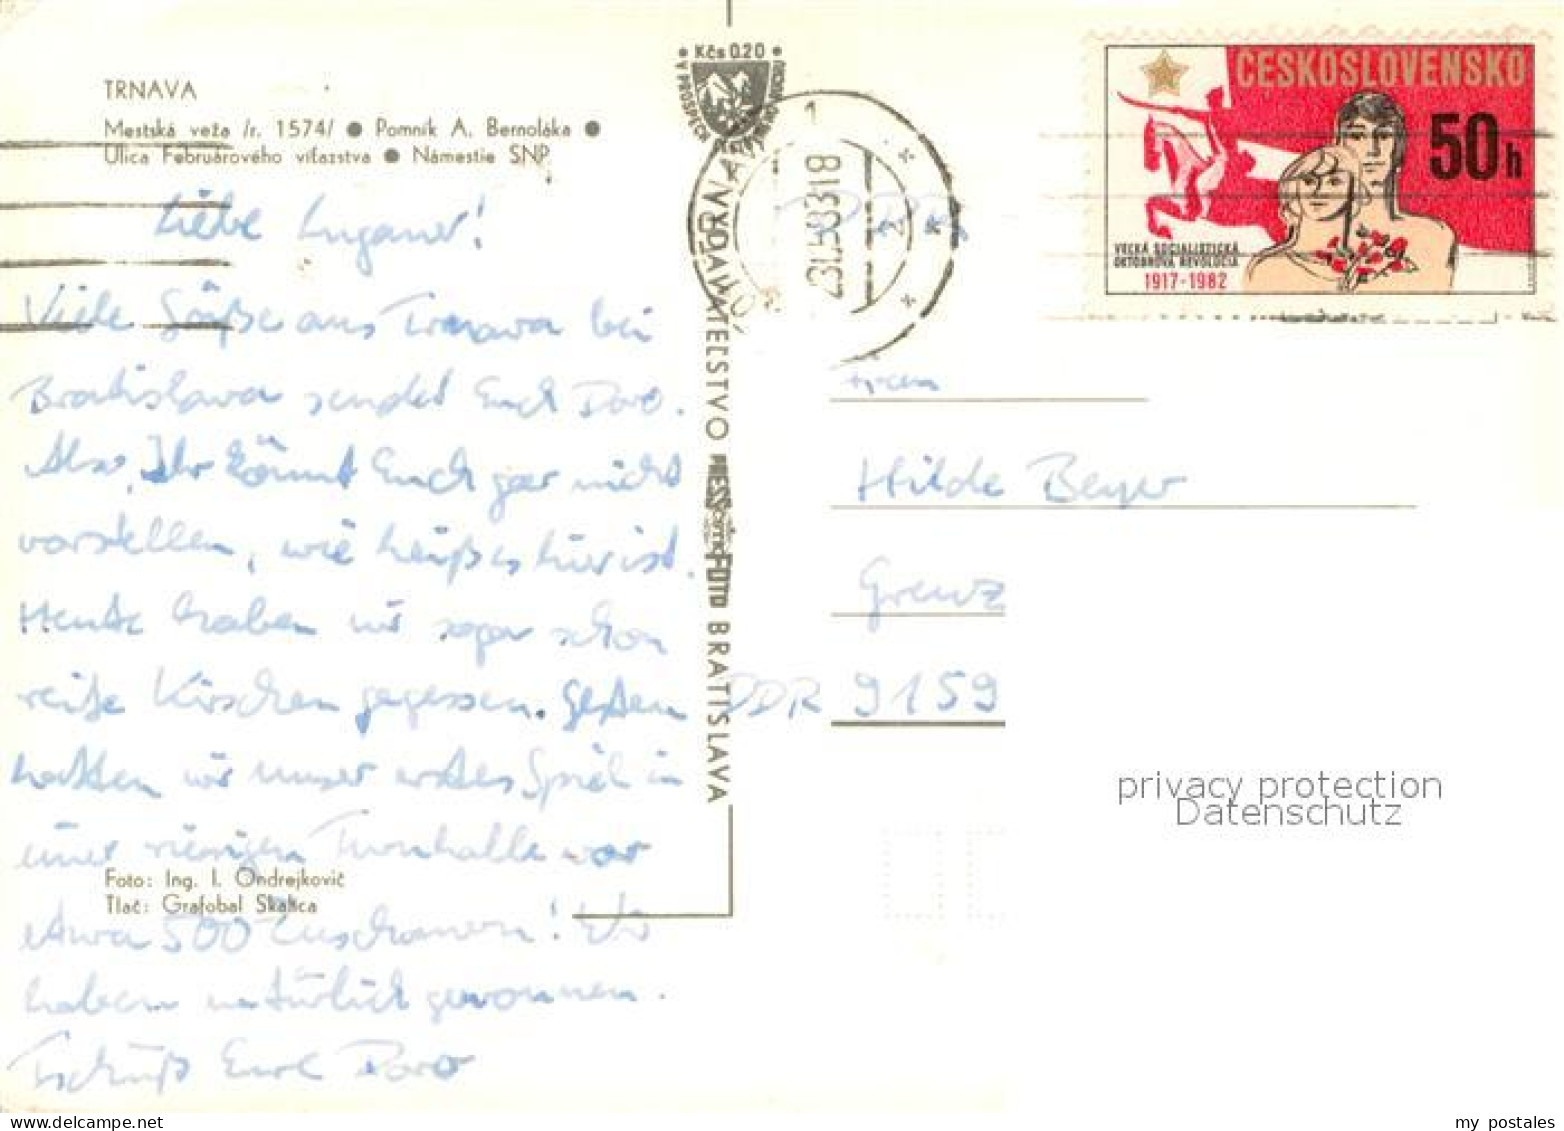 TRNAVA
Mestská veža /r. 1574/ ● Pomník A. Bernoláka ●
Ulica Februárového víťazstva ● Námestie SNP
Liebe Luganer!
Viele Grüße aus Trnava bei
Bratislava sendet Euch Doro.
Also, Ihr könnt Euch gar nicht
vorstellen, wie heiß es hier ist.
Heute haben wir sogar schon
reife Kirschen gegessen. Gestern
hatten wir unser erstes Spiel in
einer riesigen Turnhalle vor
etwa 500 Zuschauern! Wir
haben natürlich gewonnen.
Tschüß Eure Doro
Foto: Ing. I. Ondrejkovič
Tlač: Grafobal Skalica
Kčs 0.20
VYDAVATEĽSTVO PRESSFOTO BRATISLAVA
TRNAVA 1
ČESKOSLOVENSKO
50h
VEĽKÁ SOCIALISTICKÁ
OKTÓBROVÁ REVOLÚCIA
1917-1982
Hilde Beyer
DDR 9159
privacy protection
Datenschutz
my postales